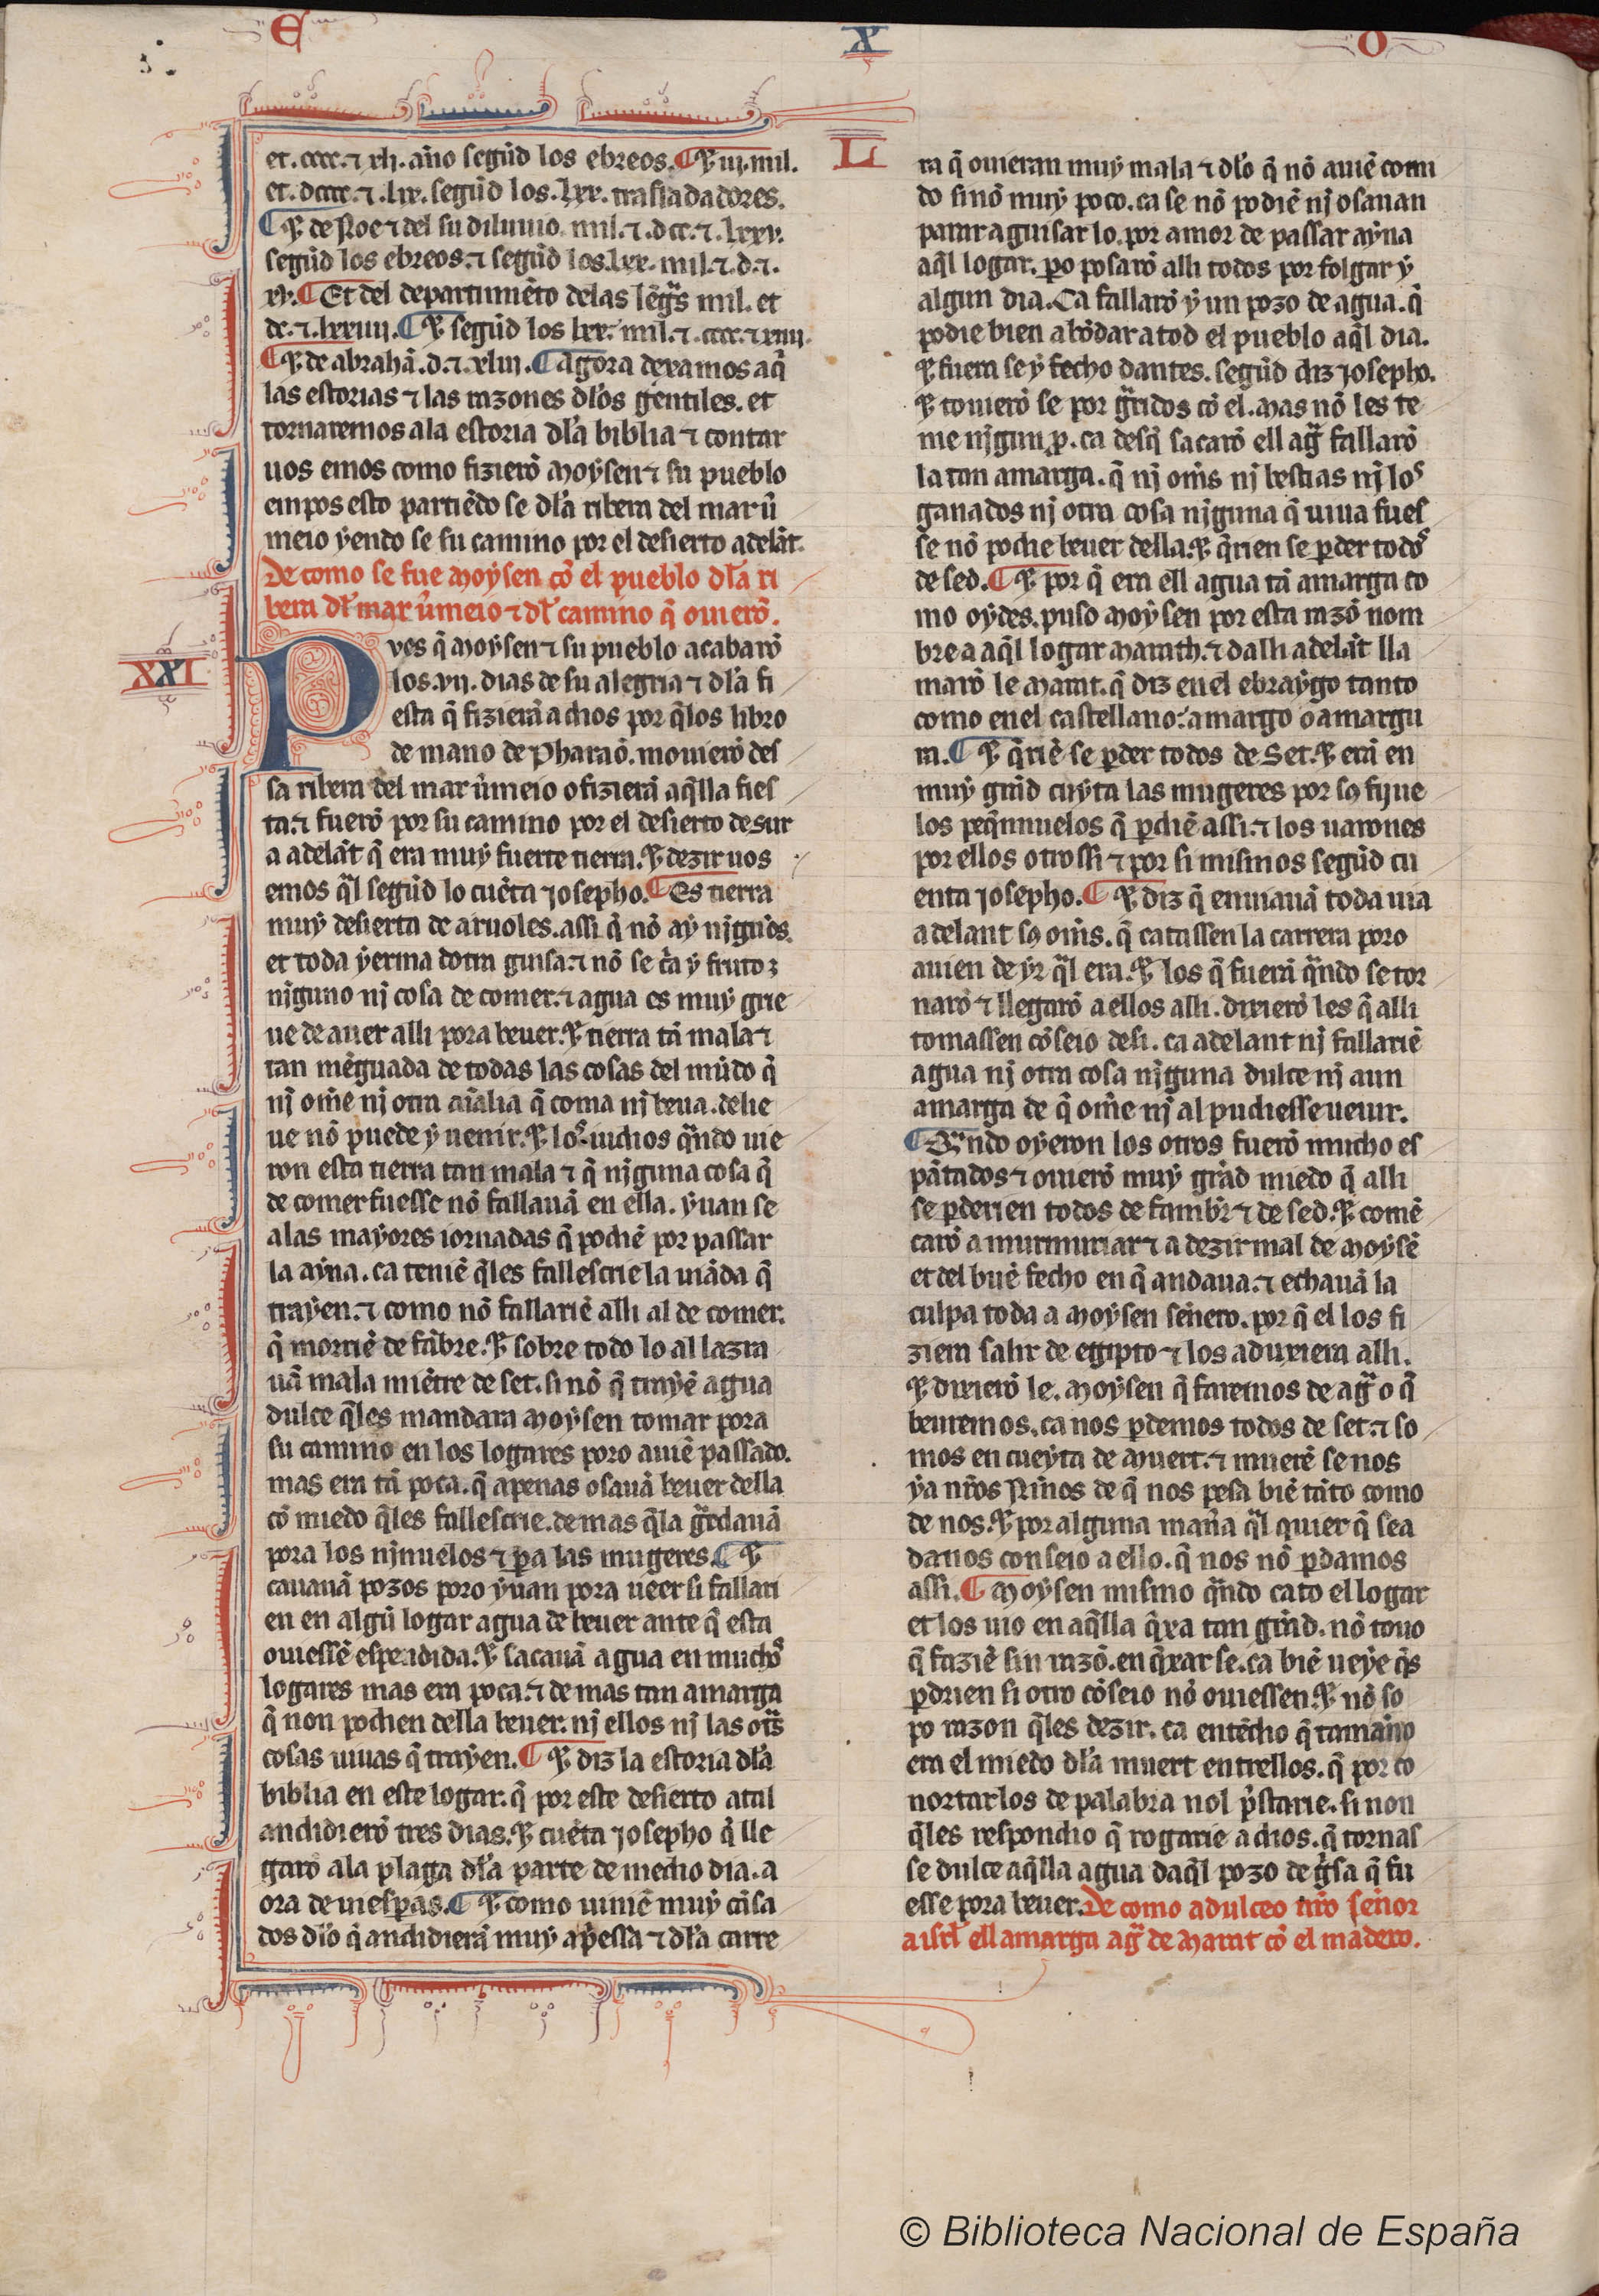 E X O
L
et. cccc. ⁊ xlj. año segũd los ebreos. ¶ ⁊ iij. mil.
et. dccc. ⁊ .lix. segũd los .lxx. trasladadores.
¶ ⁊ de Noe ⁊ del su diluuio. mil. ⁊ .dcc. ⁊ .lxxv.
segũd los ebreos. ⁊ segũd los .lxx. mil. ⁊ .d. ⁊.
xv. ¶ Et del departimiẽto delas lẽgᷓs mil. et
dc. ⁊ .lxxiiij. ¶ ⁊ segũd los lxx. mil. ⁊ .cccc. ⁊ xiiij.
¶ ⁊ de abrahã. d. ⁊ .xliij. ¶ agora dexamos aq̃
las estorias ⁊ las razones dłos gentiles. et
tornaremos ala estoria dła biblia ⁊ contar
uos emos como fizierõ Moẏsen ⁊ su pueblo
empos esto partiẽdo se dła ribera del mar ũ
meio ẏendo se su camino por el desierto adelãt.
De como se fue Moẏsen cõ el pueblo dła ri
bera dł mar ũmeio ⁊ dł camino q̃ ouierõ.
XXI
Pves q̃ Moẏsen ⁊ su pueblo acabarõ
los .vij. dias de su alegria ⁊ dła fi
esta q̃ fizierã a dios por q̃los libro
de mano de Pharaõ. mouierõ des
sa ribera del mar ũmeio o fizierã aq̃lla fies
ta. ⁊ fuerõ por su camino por el desierto de sur
a adelãt q̃ era muẏ fuerte tierra. ⁊ dezir uos
emos q̃l segũd lo cuẽta Josepho. ¶ Es tierra
muẏ desierta de aruoles. assi q̃ nõ aẏ nĩgũos.
et toda ẏerma dotra guisa. ⁊ nõ se c̃a ẏ fruto
nĩguno nj cosa de comer. ⁊ agua es muẏ grie
ue de auer alli pora beuer. ⁊ tierra tã mala ⁊
tan mẽguada de todas las cosas del mũdo q̃
nj om̃e nj otra aĩalia q̃ coma nj beua. delie
ue nõ puede ẏ uenir. ⁊ los iudios q̃ndo uie
ron esta tierra tan mala ⁊ q̃ nĩguna cosa q̃
de comer fuesse nõ fallauã en ella. ẏuan se
alas maẏores iornadas q̃ podiẽ por passar
la aẏna. ca teniẽ q̃les fallescrie la uiãda q̃
traẏen. ⁊ como nõ fallariẽ alli al de comer.
q̃ morriẽ de fãbre. ⁊ sobre todo lo al lazra
uã mala miẽtre de set. si nõ q̃ traẏẽ agua
dulce q̃les mandara Moẏsen tomar pora
su camino en los logares poro auiẽ passado.
mas era tã poca. q̃ apenas osauã beuer della
cõ miedo q̃les fallescrie. demas q̃la gᷓrdauã
pora los njnuelos ⁊ p̃a las mugeres. ¶ ⁊
cauauã pozos poro ẏuan pora ueer si fallari
en en algũ logar agua de beuer ante q̃ esta
ouiessẽ espendida. ⁊ sacauã agua en muchos
logares mas era poca. ⁊ demas tan amarga
q̃ non podien della beuer. nj ellos nj las otᷓs
cosas uiuas q̃ traẏen. ¶ ⁊ diz la estoria dła
biblia en este logar. q̃ por este desierto atal
andidierõ tres dias. ⁊ cuẽta Josepho q̃ lle
garõ ala plaga dła parte de medio dia. a
ora de uiesp̃as. ¶ ⁊ como uiniẽ muẏ cãsa
dos dło q̃ andidierã muẏ ap̃essa ⁊ dła carre
ra q̃ ouieran muẏ mala ⁊ dło q̃ nõ auiẽ comi
do sinõ muẏ poco. ca se nõ podiẽ nj osauan
parar aguisar lo. por amor de passar aẏna
aq̃l logar. p̃o posarõ alli todos por folgar ẏ
algun dia. Ca fallarõ ẏ un pozo de agua. q̃
podie bien abõdar a tod el pueblo aq̃l dia.
⁊ fuera se ẏ fecho dantes. segũd diz Josepho.
⁊ touierõ se por gᷓridos cõ el. Mas nõ les te
me njgun p̃. ca desq̃ sacarõ ell agᷓ fallarõ
la tan amarga. q̃ nj om̃s nj bestias nj los
ganados nj otra cosa njguna q̃ uiua fues
se nõ podie beuer della. ⁊ q̃rien se p̃der todos
de sed. ¶ ⁊ por q̃ era ell agua tã amarga co
mo oẏdes. puso Moẏsen por esta razõ nom
bre a aq̃l logar Marath. ⁊ dalli adelãt lla
marõ le Marat. q̃ diz en el ebraẏgo tanto
como en el castellano: amargo o amargu
ra. ¶ ⁊ q̃riẽ se p̃der todos de Set. ⁊ erã en
muẏ grãd cuẏta las mugeres por sos fijue
los peq̃nnuelos q̃ p̃diẽ assi. ⁊ los uarones
por ellos otrossi ⁊ por si mismos segũd cu
enta Josepho. ¶ ⁊ diz q̃ enuiauã toda uia
adelant sos om̃s. q̃ catassen la carrera poro
auien de ẏr q̃l era. ⁊ los q̃ fuerã q̃ndo se tor
narõ ⁊ llegarõ a ellos alli. dixierõ les q̃ alli
tomassen cõseio desi. ca adelant nj fallariẽ
agua nj otra cosa njguna dulce nj aun
amarga de q̃ om̃e nj al pudiesse ueuir.
¶ Q̃ndo oẏeron los otros fuerõ mucho es
pãtados ⁊ ouierõ muẏ grãd miedo q̃ alli
se p̃derien todos de fambr̃ ⁊ de sed. ⁊ comẽ
çarõ a murmuriar ⁊ a dezir mal de Moẏsẽ
et del buẽ fecho en q̃ andaua. ⁊ echauã la
culpa toda a Moẏsen señero. por q̃ el los fi
ziera salir de egipto ⁊ los aduxiera alli.
⁊ dixierõ le. Moẏsen q̃ faremos de agᷓ o q̃
beuremos. ca nos p̃demos todos de set. ⁊ so
mos en cueẏta de Muert. ⁊ muerẽ se nos
ẏa nr̃os Niños de q̃ nos pesa biẽ tãto como
de nos. ⁊ por alguna mañã q̃l quier q̃ sea
danos conseio a ello. q̃ nos nõ p̃damos
assi. ¶ Moẏsen mismo q̃ndo cato el logar
et los uio en aq̃lla q̃xa tan grãd. nõ touo
q̃ faziẽ sin razõ. en q̃xar se. ca biẽ ueẏe q̃s
p̃drien si otro cõseio nõ ouiessen. ⁊ nõ so
po razon q̃les dezir. ca entẽdio q̃ tamaño
era el miedo dła muert entrellos. q̃ por co
nortarlos de palabra nol p̃starie. si non
q̃les respondio q̃ rogarie a dios. q̃ tornas
se dulce aq̃lla agua daq̃l pozo de gᷓsa q̃ fu
esse pora beuer. De como adulceo nr̃o señor
a isrł ell amarga agᷓ de Marat cõ el madero.
© Biblioteca Nacional de España